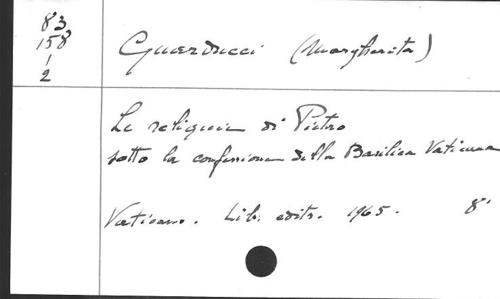 83
158
1
2
Guarducci (Margherita)
Le reliquie di Pietro
sotto la confessione della Basilica Vaticana
Vaticano. Lib. editr. 1965. 8°